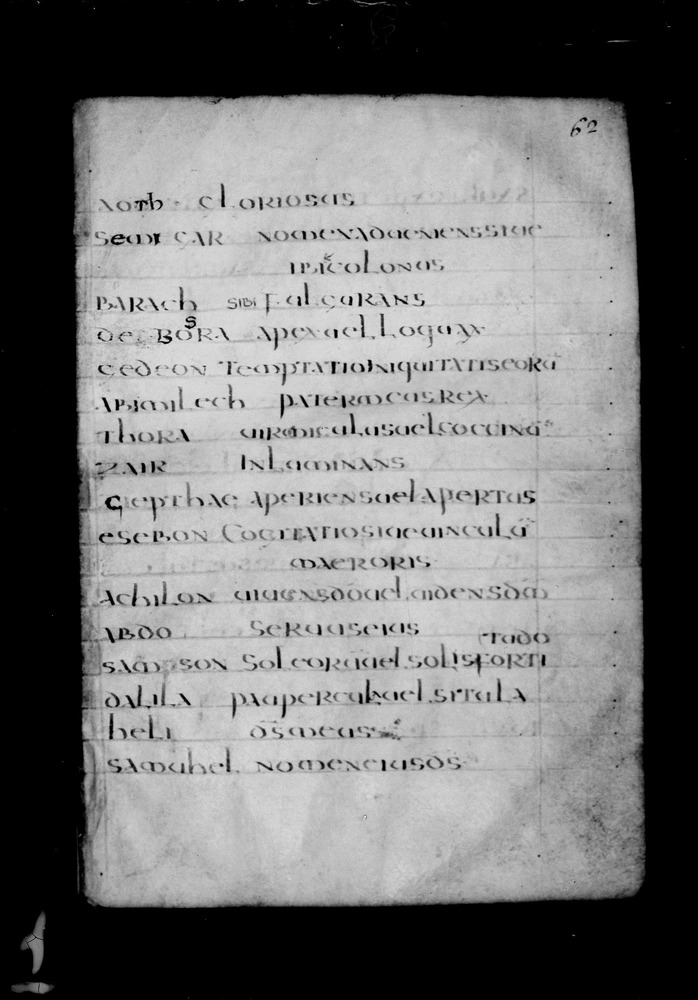 62
AOTh GLORIOSUS
SEMIGAR NOMENADUENIENSSIUE
IBICOLONUS
BARACh SIBI FULGURANS
DE BOSRA APEXUELLOQUAX
GEDEON TEMPTATIOINIQUITATISEORU
ABIMILECH PATERMEUSREX
THORA UIRMICULUSUELCOCCINU
ZAIR INLUMINANS
GIEPTHAE APERIENSUELAPERTUS
ESEBON COGITATIOSIUEUINCULU
MAERORIS
ACHILON UIUENSDOUELUIDENSDM
ABDO SERUUSEIUS
TUDO
SAMPSON SOLEORUUELSOLISFORTI
DALILA PAUPERCULAUELSITULA
HELI DSMEUS
SAMUHEL NOMENEIUSDS